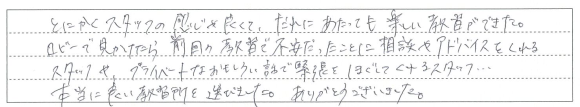 とにかくスタッフの感じが良くて、だれにあたっても楽しい教習ができた。
ロビーで見かけたら前回の教習で不安だったことに相談やアドバイスをくれる
スタッフや、プライベートなおもしろい話で緊張をほどしてくれるスタッフ…
本当に良い教習所を選びました。ありがとうございました。